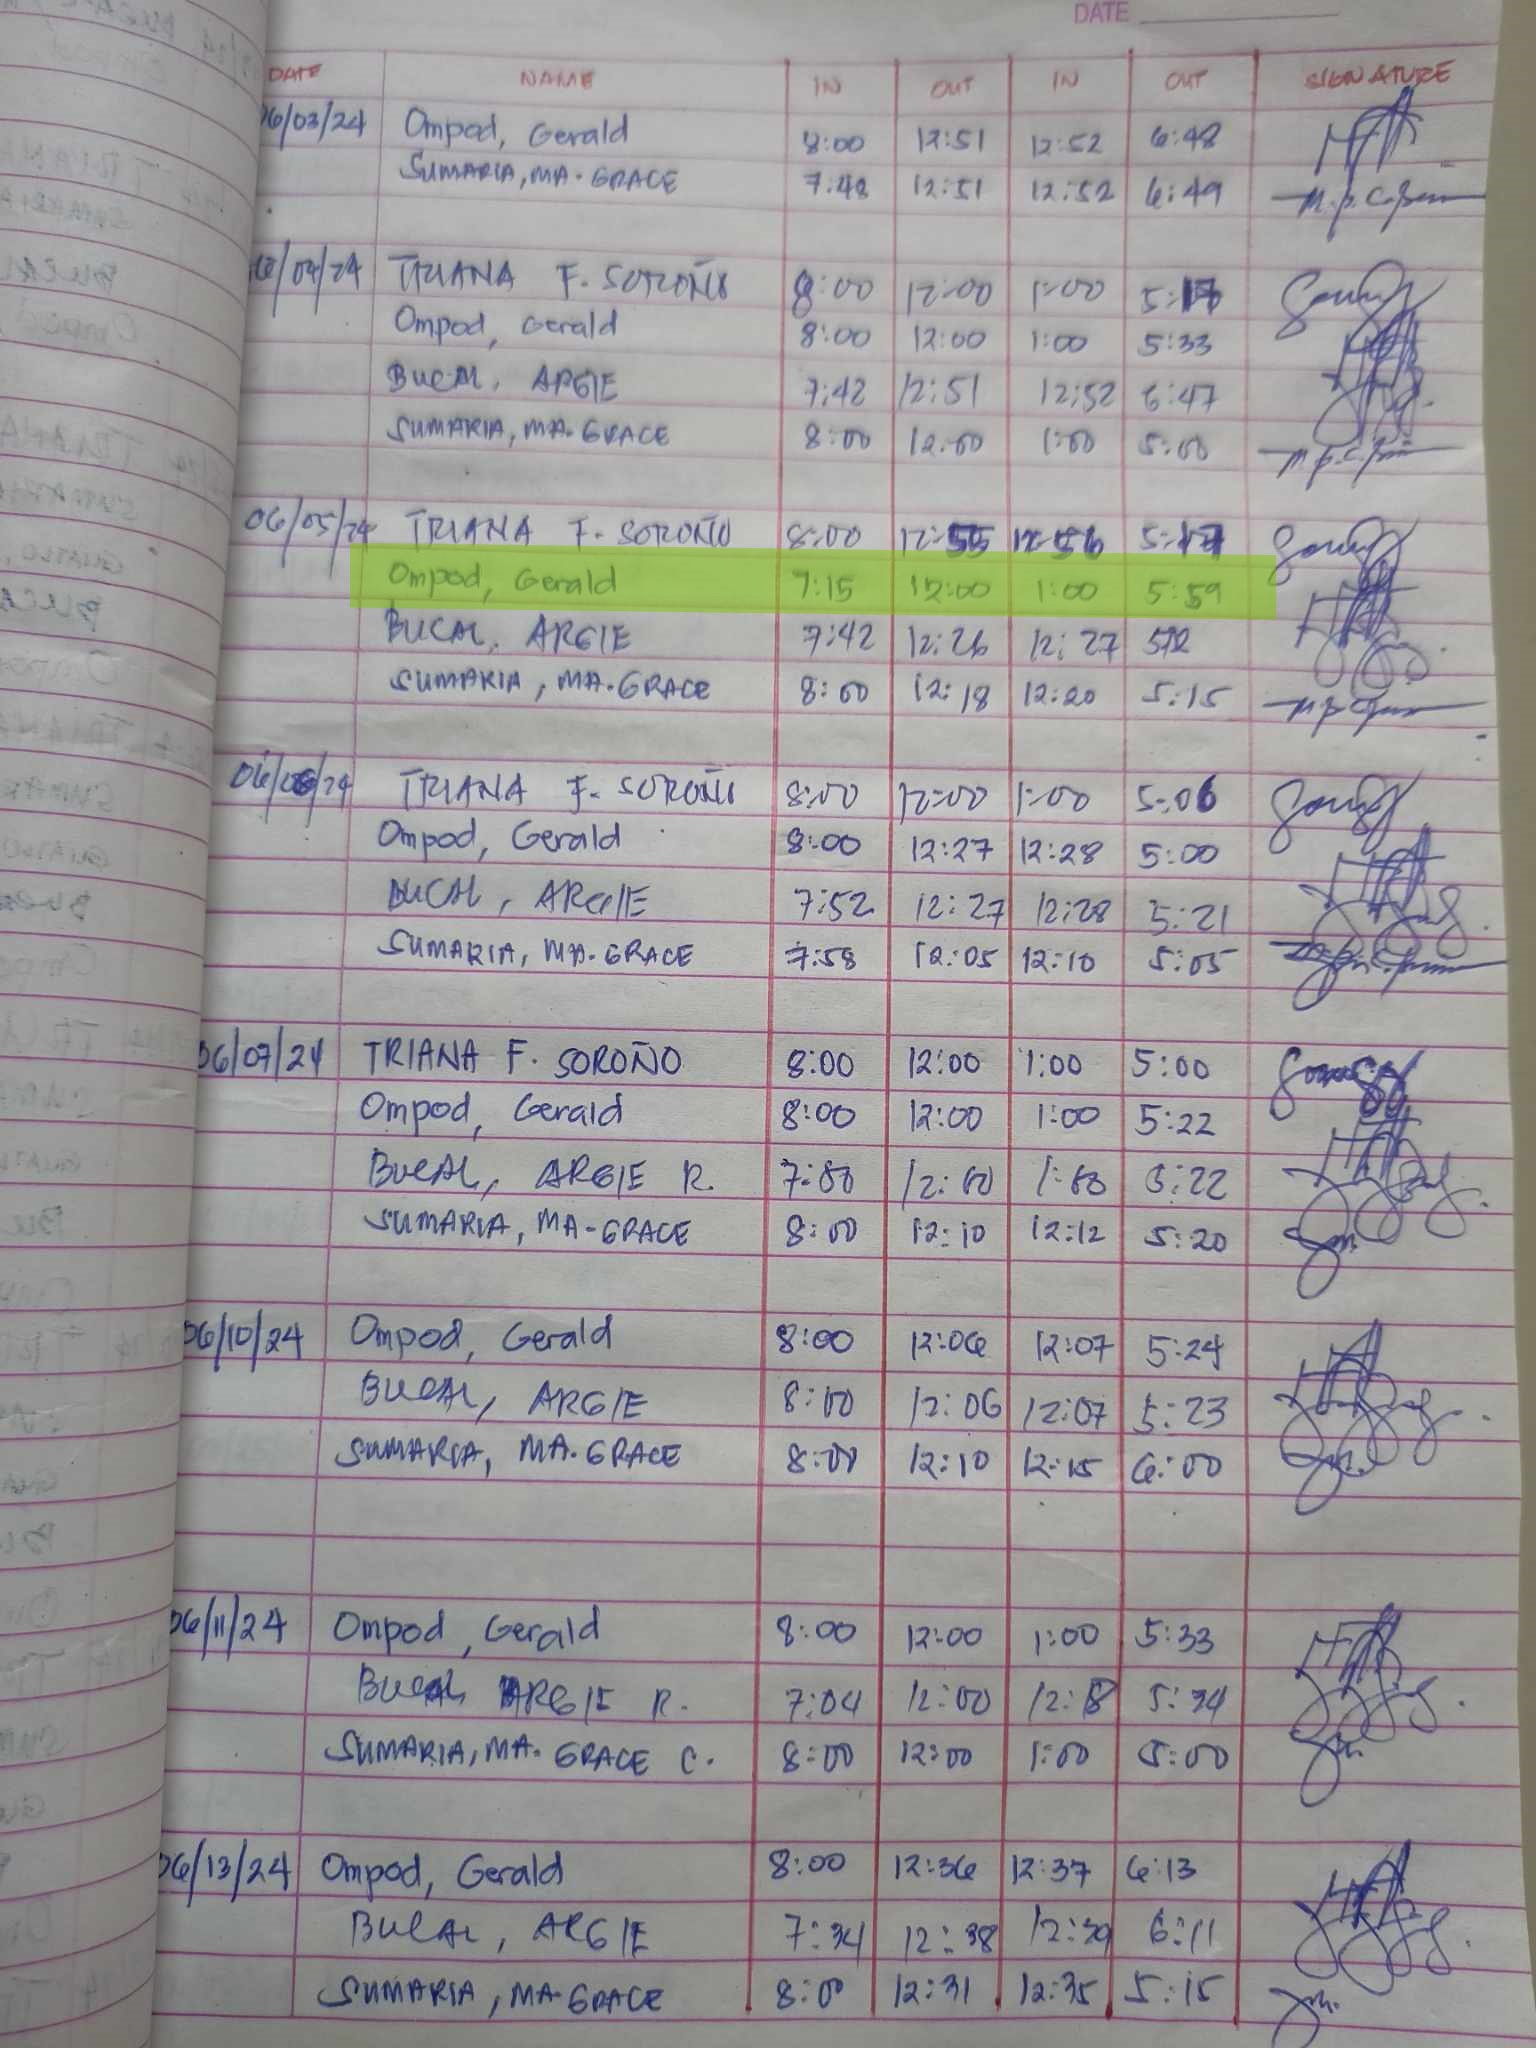 DATE
DATE NAME IN OUT IN OUT SIGNATURE
06/03/24 Ompod, Gerald 8:00 12:51 12:52 6:48
SUMARIA, MA. GRACE 7:48 12:51 12:52 6:49
06/04/24 TRIANA F. SOROÑO 8:00 12:00 1:00 5:17
Ompod, Gerald 8:00 12:00 1:00 5:33
BUCAL, ARGIE 7:42 12:51 12:52 6:47
SUMARIA, MA. GRACE 8:00 12:00 1:00 5:00
06/05/24 TRIANA F. SOROÑO 8:00 12:55 12:56 5:17
Ompod, Gerald 7:15 12:00 1:00 5:59
BUCAL, ARGIE 7:42 12:26 12:27
SUMARIA, MA. GRACE 8:00 12:18 12:20 5:15
06/06/24 TRIANA F. SOROÑO 8:00 12:00 1:00 5:06
Ompod, Gerald 8:00 12:27 12:28 5:00
BUCAL, ARGIE 7:52 12:27 12:28 5:21
SUMARIA, MA. GRACE 7:58 12:05 12:10 5:05
06/07/24 TRIANA F. SOROÑO 8:00 12:00 1:00 5:00
Ompod, Gerald 8:00 12:00 1:00 5:22
BUCAL, ARGIE R. 7:00 12:00 1:00 5:22
SUMARIA, MA. GRACE 8:00 12:10 12:12 5:20
06/10/24 Ompod, Gerald 8:00 12:06 12:07 5:24
BUCAL, ARGIE 8:00 12:06 12:07 5:23
SUMARIA, MA. GRACE 8:00 12:10 12:15 6:00
06/11/24 Ompod, Gerald 8:00 12:00 1:00 5:33
BUCAL ARGIE R. 7:04 12:00 12:18 5:34
SUMARIA, MA. GRACE C. 8:00 12:00 1:00 5:00
06/13/24 Ompod, Gerald 8:00 12:36 12:37 6:13
BUCAL, ARGIE 7:34 12:38 12:39 6:11
SUMARIA, MA. GRACE 8:00 12:31 12:35 5:15